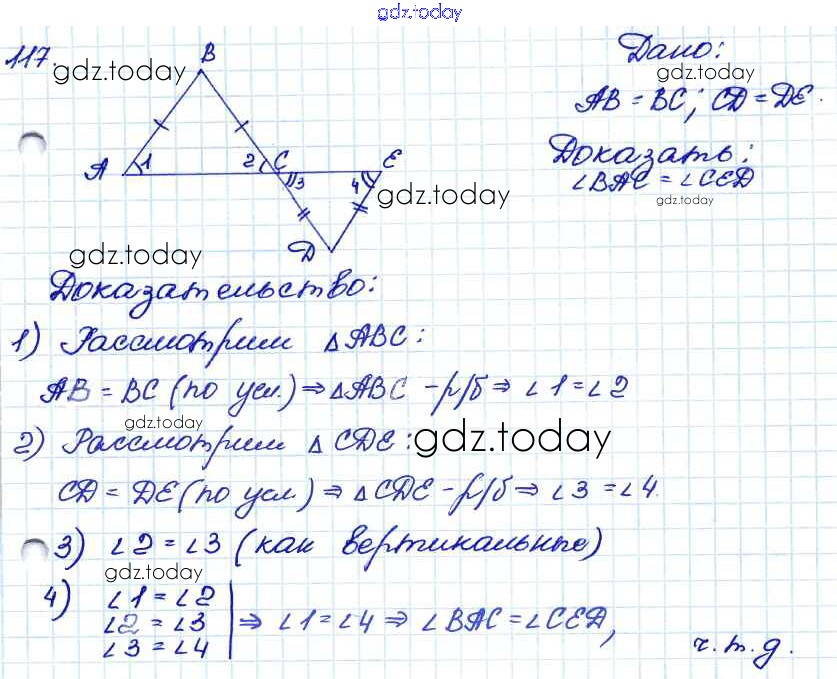 gdz.today
117.
gdz.today
B
A 1 2 C E
3 4
D
gdz.today
Дано:
gdz.today
AB = BC; CD = DE.
Доказать:
∠BAC = ∠CED
gdz.today
gdz.today
Доказательство:
1) Рассмотрим △ABC:
AB = BC (по усл.) ⇒ △ABC – р/б ⇒ ∠1 = ∠2
gdz.today
2) Рассмотрим △CDE:
gdz.today
CD = DE (по усл.) ⇒ △CDE – р/б ⇒ ∠3 = ∠4.
3) ∠2 = ∠3 (как вертикальные)
gdz.today
4) ∠1 = ∠2
∠2 = ∠3 ⇒ ∠1 = ∠4 ⇒ ∠BAC = ∠CED,
∠3 = ∠4
ч.т.д.